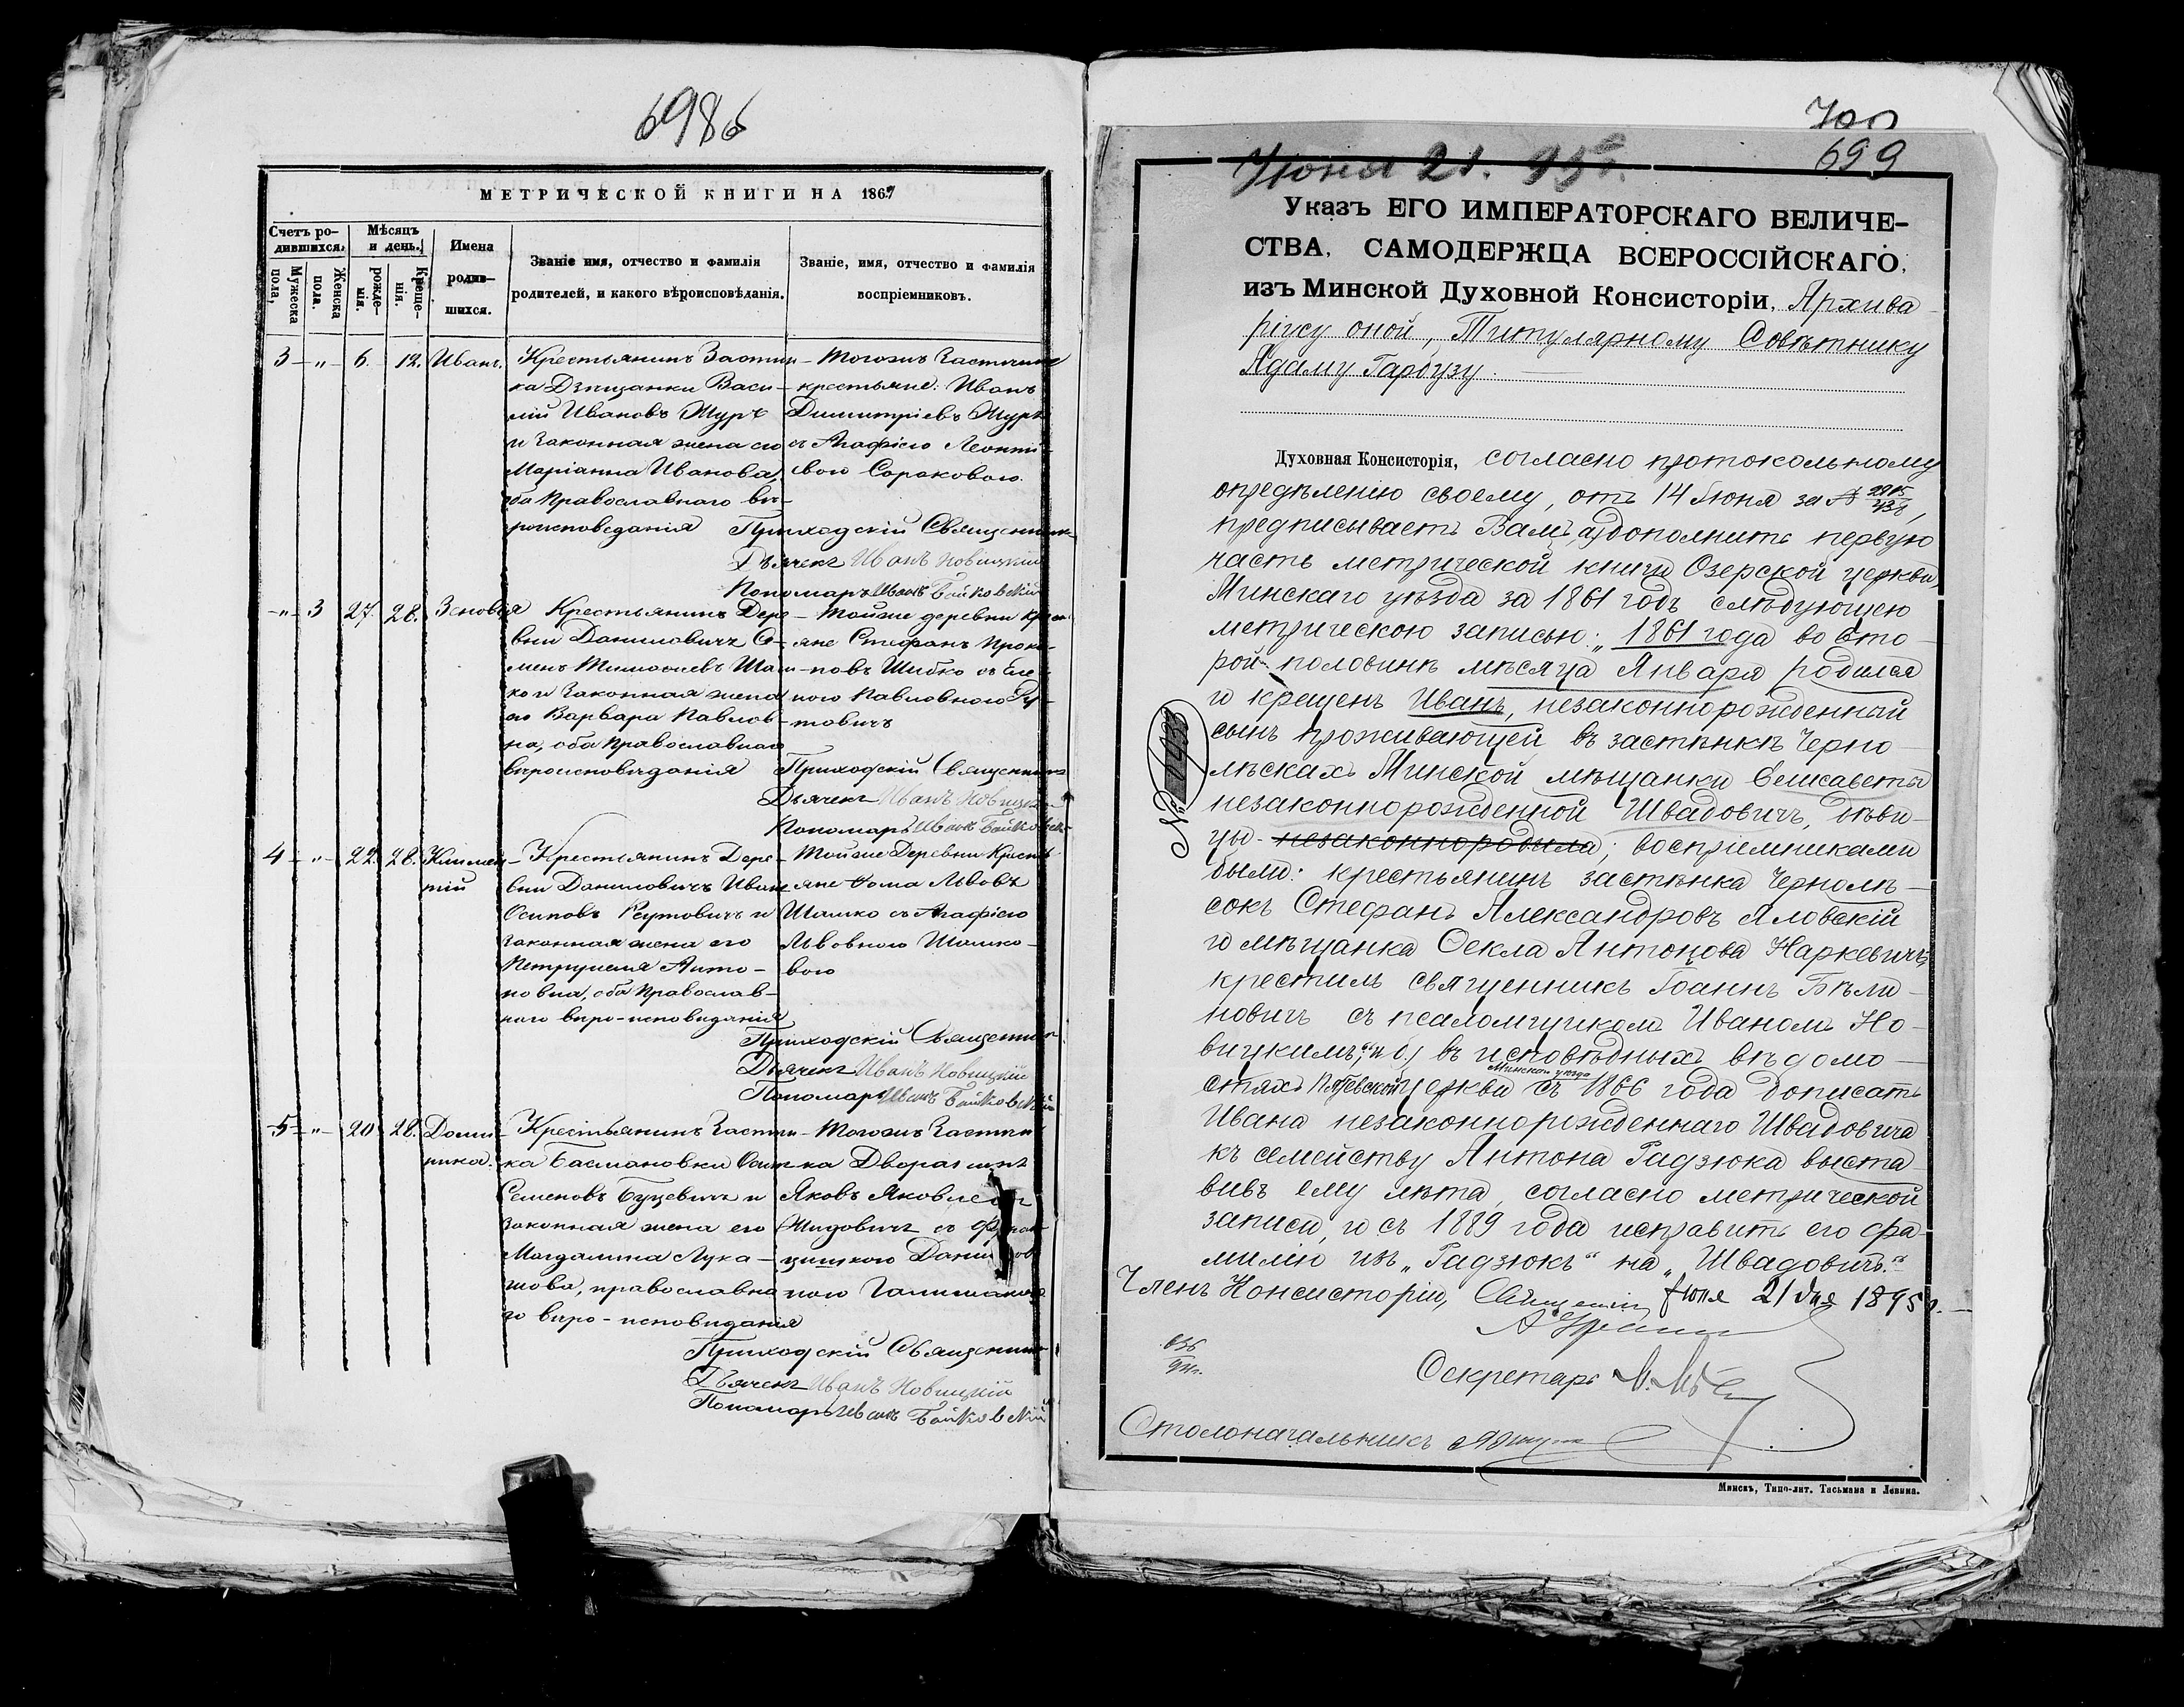 698б
МЕТРИЧЕСКОЙ КНИГИ НА 1867
Счетъ родившихся.
Мѣсяцъ и день.
Имена родившихся.
Званіе имя, отчество и фамилія родителей, и какого вѣроисповѣданія.
Званіе, имя, отчество и фамилія воспріемниковъ.
Мужеска пола,
Женска пола.
рожденія.
Крещенія.
3 — „ — 6. 12. Иванъ.
Крестьянинъ Застѣн-
ка Дзѣщанки Васи-
лій Ивановъ Журъ
и законная жена его
Маріанна Иванова,
оба Православнаго вѣ-
роисповеданія
Тогожъ Застѣнка
крестьяне: Иванъ
Димитріевъ Журъ
съ Агафіею Леонті-
евою Сораковою.
Приходскій Священникъ
Дьячекъ Иванъ Новицкій
Пономарь Иванъ Бойковскій
— „ — 3 27. 28. Зеновія
Крестьянинъ Дере-
вни Даниловичъ Се-
менъ Тимофеевъ Шаш-
ко и законная жена
его Варвара Павлов-
на, оба Православнаго
вѣроисповѣданія
Тойже деревни крест-
яне Стефанъ Проко-
повъ Шибко съ Еле-
ною Павловною Ре-
утовичъ
Приходскій Священникъ
Дьячекъ Иванъ Новицкій
Пономарь Иванъ Бойковскій
4 — „ — 22. 28. Климен-
тій
Крестьянинъ Дере-
вни Даниловичъ Иванъ
Осиповъ Реутовичъ и
законная жена его
Петрунеля Анто-
новна, оба Православ-
наго вѣро-исповѣданія
Тойже Деревни Крестья-
яне Ѳома Львовъ
Шашко съ Агафіею
Львовною Шашко-
вою
Приходскій Священникъ
Дьячекъ Иванъ Новицкій
Пономарь Иванъ Бойковскій
5 — „ — 20 28. Доми-
ника.
Крестьянинъ Застѣн-
ка Басмановки Осипъ
Семеновъ Буцевичъ и
законная жена его
Магдалина Лука-
шова, православна-
го вѣро-исповѣданія
Тогожъ Застѣн-
ка Дворянинъ
Яковъ Яковлевъ
Шидовичъ съ Фран-
цишкою Данилов-
ною
Приходскій Священникъ
Дьячекъ Иванъ Новицкій
Пономарь Иванъ Бойковскій
700
699
Іюня 21. 95 г.
Указъ ЕГО ИМПЕРАТОРСКАГО ВЕЛИЧЕ-
СТВА, САМОДЕРЖЦА ВСЕРОССІЙСКАГО,
изъ Минской Духовной Консисторіи, Архива-
ріусу оной, Титулярному Совѣтнику
Адаму Гарбузу.
Духовная Консисторія, согласно протокольному
опредѣленію своему, отъ 14 Іюня за №
предписываетъ Вамъ, а) дополнить первую
часть метрической книги Озерской церкви,
Минскаго уѣзда за 1861 годъ слѣдующею
метрическою записью: „1861 года во вто-
рой половинѣ мѣсяца Января родился
и крещенъ Иванъ, незаконнорожденный
сынъ проживающей въ застѣнкѣ Черно-
лѣскахъ Минской мѣщанки Елисаветы
незаконнорожденной Швадовичъ, дѣви-
цы незаконнородила; воспріемниками
были: крестьянинъ застѣнка Чернолѣ-
сокъ Стефанъ Александровъ Яловскій
и мѣщанка Ѳекла Антонова Наркевичъ,
крестилъ священникъ Іоаннъ Бѣли-
новичъ съ псаломщикомъ Иваномъ Но-
вицкимъ;" и б) въ исповѣдныхъ вѣдомо-
стяхъ церкви Минскаго уѣзда съ 1866 года дописать
Ивана незаконнорожденнаго Швадовича
къ семейству Антона Гадзюка выста-
вивъ ему лѣта, согласно метрической
записи, и съ 1889 года исправить его фа-
милію изъ „Гадзюкъ" на „Швадовичъ."
Членъ Консисторіи, Священникъ Іюня 21 дня 1895 г.
Секретарь
Столоначальникъ
№
Минскъ, Типо-лит. Тасьмана и Левина.